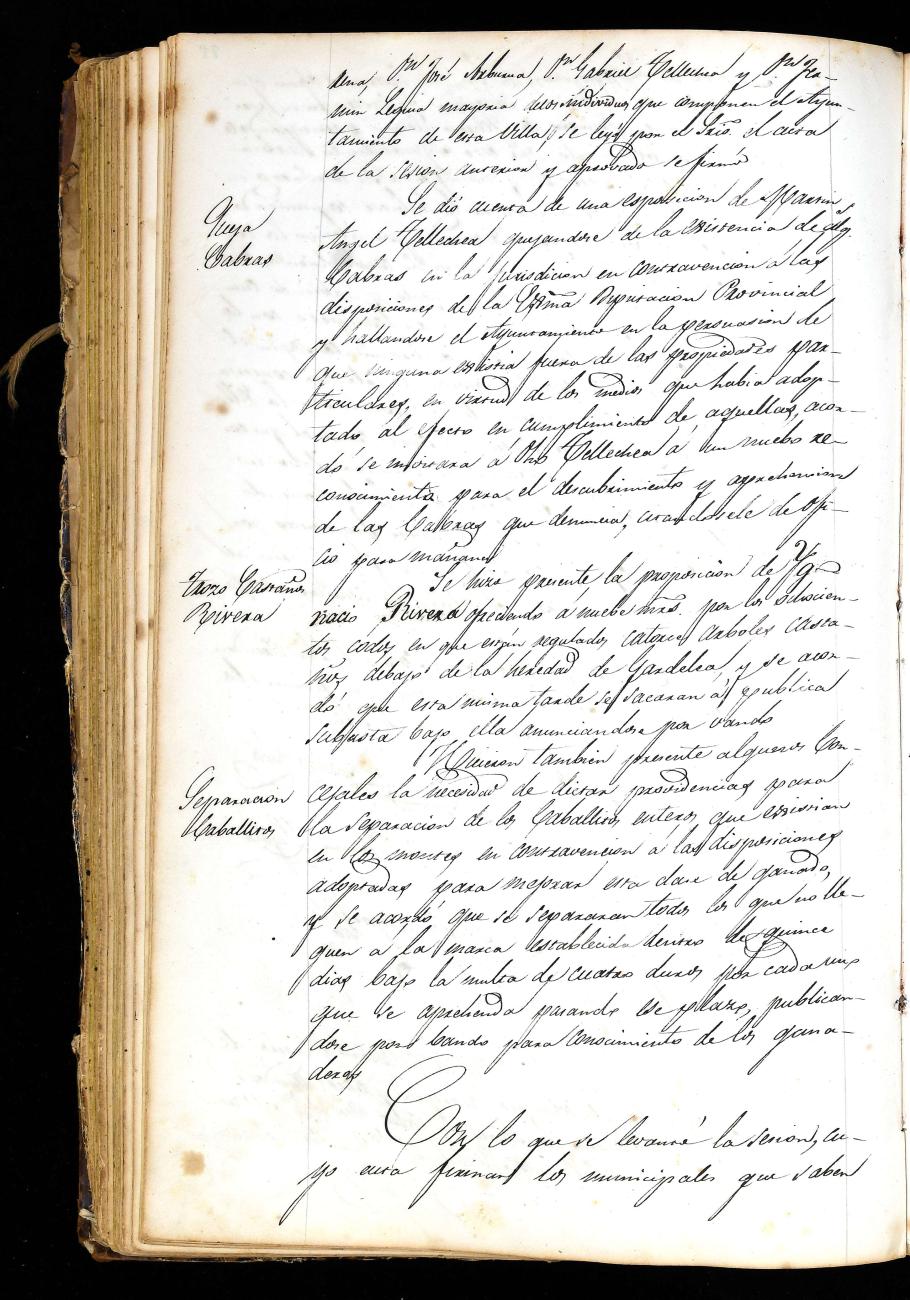 rena, Dn José Arburua, Dn Gabriel Tellechea y Dn Fer-
min Leguia mayoria delos individuos que componen el Ayun-
tamiento de esta Villa, se leyó por el Srio. el acta
de la sesion anterior y aprobado se firmó
Queja
Cabras
Se dió cuenta de una esposicion de Martin
Angel Tellechea quejandose de la existencia de alg.s
Cabras en la jurisdicion en contravencion a las
disposiciones de la Exma Diputacion Provincial
y hallandose el Ayuntamiento en la persuasion de
que ninguna existia fuera de las propiedades par-
ticulares, en virtud de los medios que habia adop-
tado al efecto en cumplimiento de aquellas, acor-
dó se invitara á dho Tellechea á un nuebo re-
conocimiento para el descubrimiento y aprehension
de las Cabras que denuncia, citandosele de ofi-
cio para mañana
Trozo Castaños
Rivera
Se hizo presente la proposicion de Yg-
nacio Rivera ofreciendo á nuebe mrs. por los seiscien-
tos codos en que están regulados catorce arboles casta-
ños debajo de la heredad de Gardelea, y se acor-
dó que esta misma tarde se sacaran á publica
subasta bajo ella anunciandose por vando
Separacion
Caballios
Hicieron tambien presente algunos Con-
cejales la necesidad de dictar providencias para
la separacion de los Caballios enteros que existian
en los montes en contravencion a las disposiciones
adoptadas para mejorar esta clase de ganado,
y se acordó que se separaran todos los que no lle-
guen a la marca establecida dentro de quince
dias bajo la multa de cuatro duros por cada uno
que se aprehenda pasando ese plazo, publican-
dose por bando para conocimiento de los gana-
deros
Con lo que se levantó la sesion, cu-
yo acta firman los municipales que saben